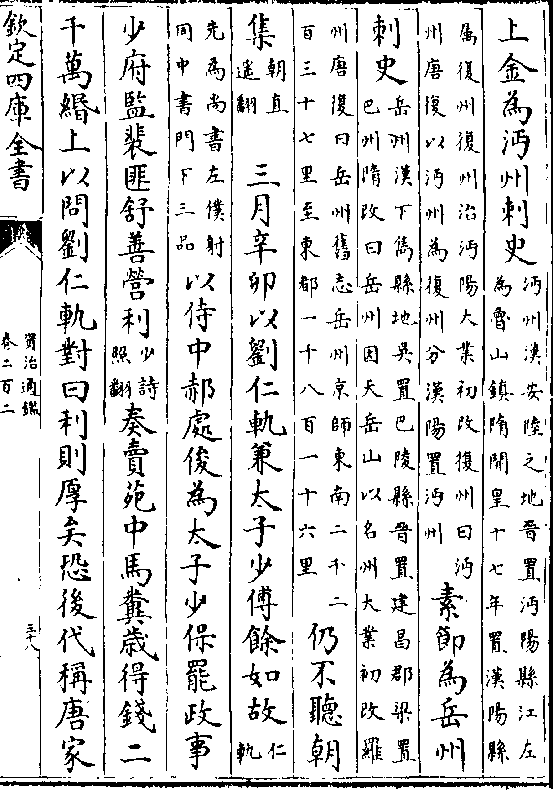 上金為沔州刺史沔州漢安陸之地晉置沔陽縣江左為魯山鎮隋開皇十七年置漢陽縣
屬復州復州治沔陽大業初改復州曰沔州唐復以沔州為復州分漢陽置沔州素節為岳州
刺史岳州漢下雋縣地吳置巴陵縣晉置建昌郡梁置巴州隋改曰岳州因天岳山以名州大業初改羅
州唐復曰岳州舊志岳州京師東南二千二百三十七里至東都一千八百一十六里仍不聽朝
集朝直遥翻 三月辛卯以劉仁軌兼太子少傅餘如故仁軌
先為尚書左僕射同中書門下三品以侍中郝處俊為太子少保罷政事
少府監裴匪舒善營利少詩照翻奏賣苑中馬糞歲得錢二
千萬緡上以問劉仁軌對曰利則厚矣恐後代稱唐家
欽定四庫全書
資治通鑑
卷二百二
三十八